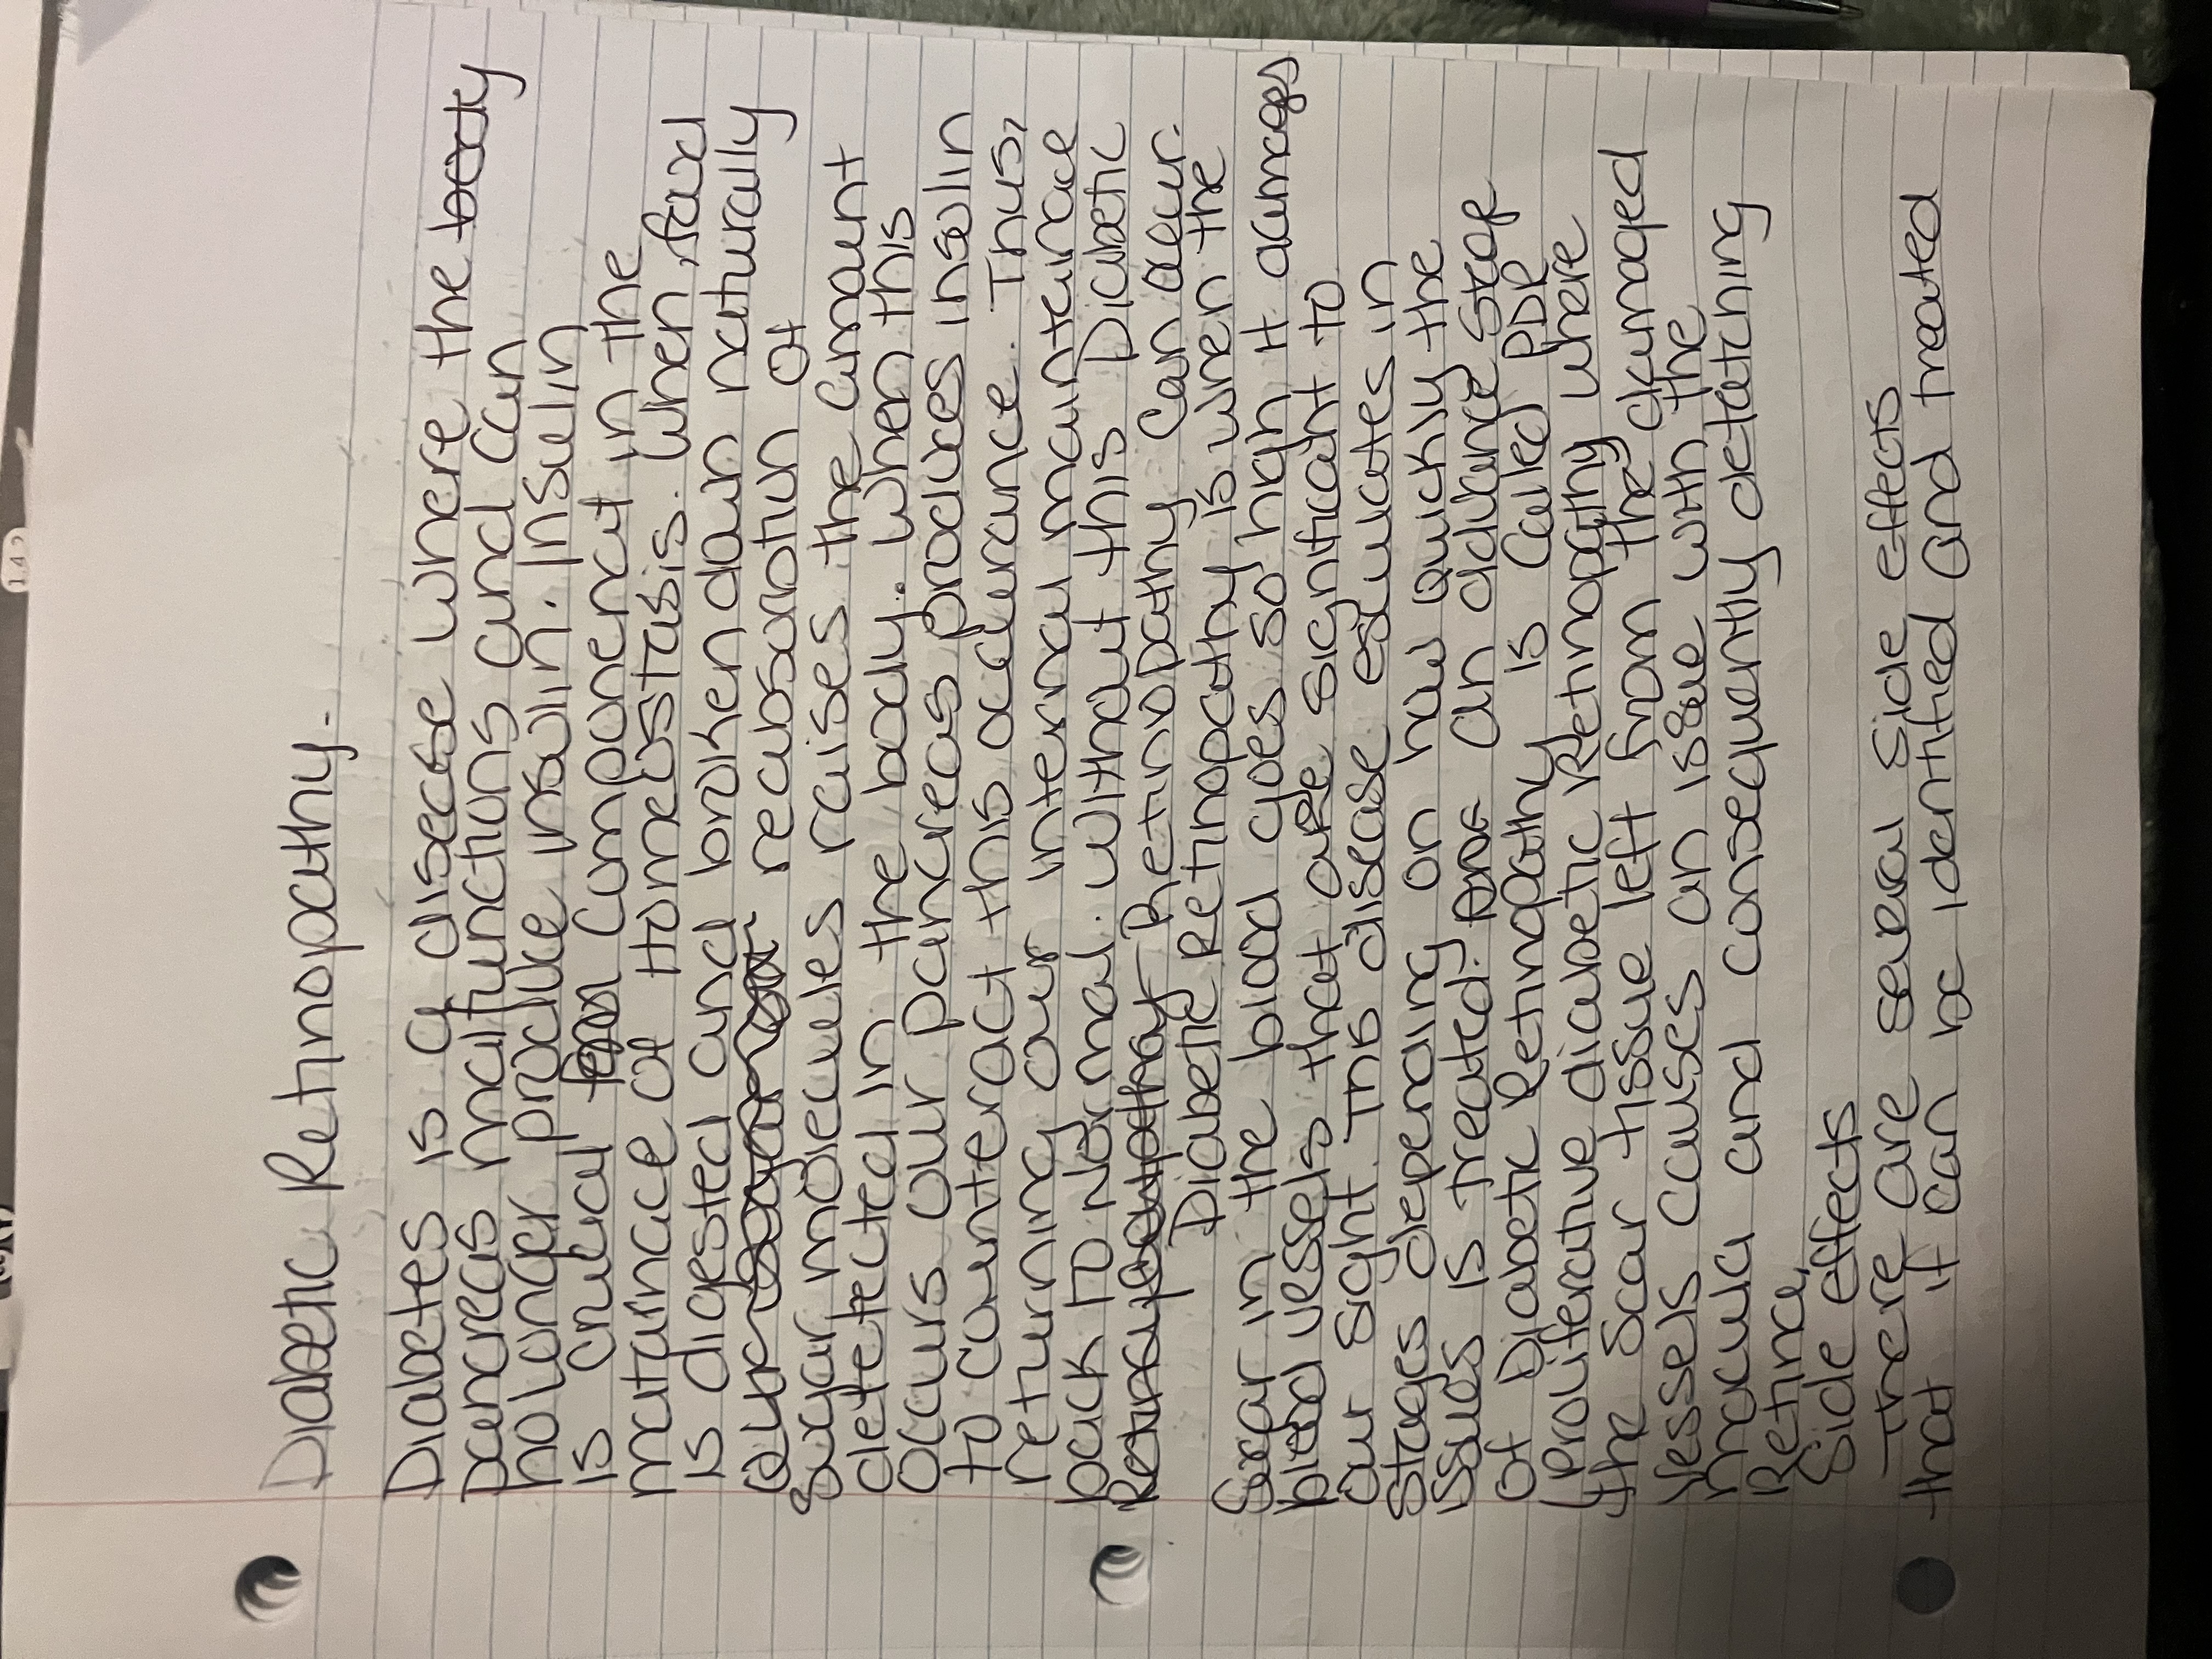 1.4.2
Diabetic Retinopathy.
Diabetes is a disease where the body
pancreas malfunctions and can
no longer produce insulin. Insulin
is crucial componenat in the
matainace of Homeostasis. When food
is digested and broken down naturally
our sugar reabsorbtion of
sugar molecules raises the amount
detetected in the body. When this
occurs our pancreas produces insulin
to counteract this occurance. Thus,
returning our internal maintainace
back to Normal. Without this Diabetic
Retinopathy can occur.
Diabetic Retinopathy is when the
Sugar in the blood goes so high it damages
blood vessels that are significant to
our sight. This disease esculates in
stages depending on how quickly the
issues is treated. an advance stage
of Diabetic Retinopathy is called PDR
(Proliferative diabetic Retinopathy where
the scar tissue left from the damaged
vessels causes an issue with the
macula and consequently detatching
Retina,
Side effects
There are several side effects
that if can be identified and treated